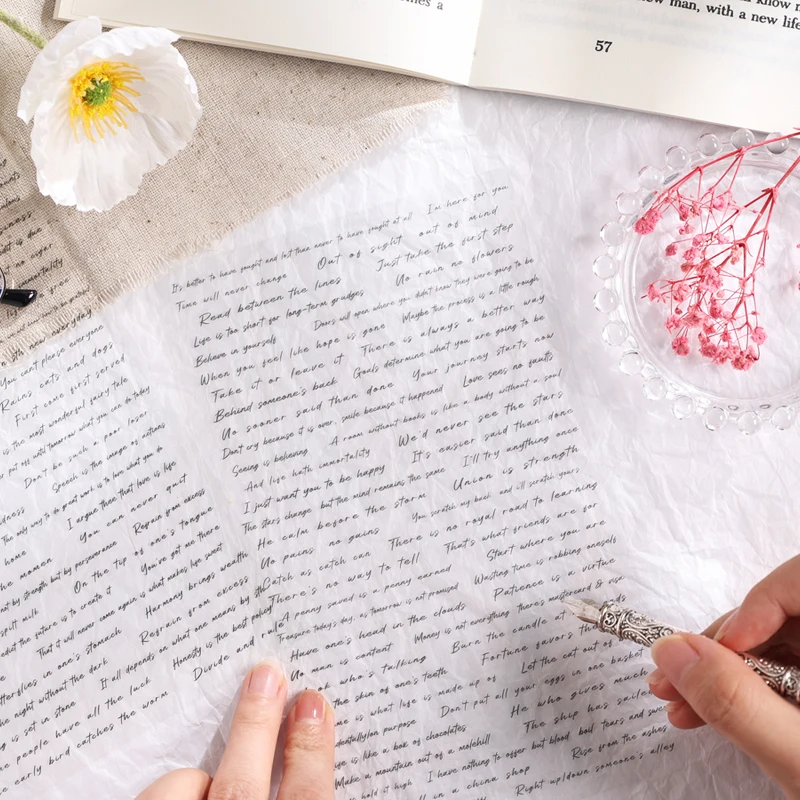 know
new man, with a new life
57
It's better to have sought and lost than never to have sought at all I'm here for you
Time will never change Out of sight out of mind
Read between the lines Just take the first step
Life is too short for long-term grudges No rain no flowers
Believe in yourself Doors will open where you didn't know they were going to be
When you feel like hope is gone Maybe the process is a little rough
Take it or leave it There is always a better way
Behind someone's back Goals determine what you are going to be
No sooner said than done Your journey starts now
Don't cry because it is over, smile because it happened Love sees no faults
Seeing is believing A room without books is like a body without a soul
And love hath immortality We'd never see the stars
I just want you to be happy It's easier said than done
The stars change but the mind remains the same I'll try anything once
He calm before the storm Union is strength
No pains no gains You scratch my back and i'll scratch yours
Catch as catch can There is no royal road to learning
There's no way to tell That's what friends are for
A penny saved is a penny earned Start where you are
Treasure today's day, as tomorrow is not promised Wasting time is robbing oneself
Have one's head in the clouds Patience is a virtue
No man is content Money is not everything there's mastercard & visa
who's talking Burn the candle at
the skin of one's teeth Fortune favors the
is what life is made up of Let the cat out of
purpose Don't put all your eggs in one basket
is like a box of chocolates He who gives much
Make a mountain out of a molehill The ship has sailed
hold it high I have nothing to offer but blood toil tears and
in a china shop Rise from the ashes
Right up/down someone's alley
business
is due
no cigar
immortality
free
everyday
You can't please everyone
Rains cats and dogs
First come first served
is the most wonderful fairy tale
put off until tomorrow what you can do today
Don't be such a poor loser
Speech is the image of actions
The only way to do great work is to love what you do
home I argue thee that love is life
the moment You can never quit
by strength but by perseverance Refrain from excess
spilt milk On the tip of one's tongue
the future is to create it You've got me there
That it will never come again is what makes life sweet
butterflies in one's stomach Harmony brings wealth
the night without the dark Refrain from excess
is set in stone It all depends on what one means by
people have all the luck Honesty is the best policy
early bird catches the worm Divide and rule